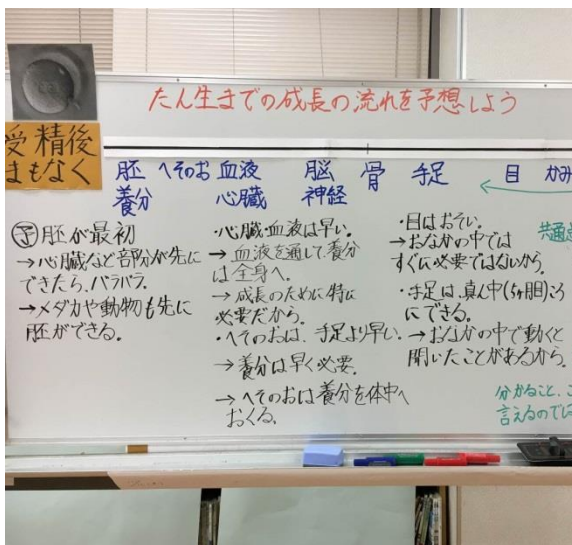 たん生までの成長の流れを予想しよう
受精後
まもなく
胚 へそのお 血液 脳 骨 手足 目 かみ
養分 心臓 神経
予 胚が最初
→心臓など部分が先に
できたら、バラバラ。
→メダカや動物も先に
胚ができる。
・心臓・血液は早い。
→血液を通して、養分
は全身へ。
→成長のために特に
必要だから。
・へそのおは、手足より早い。
→養分は早く必要。
→へそのおは養分を体中へ
おくる。
・目はおそい。
→おなかの中では
すぐに必要ではないから。
・手足は、真ん中(5ヶ月)ころ
にできる。
→おなかの中で動くと
聞いたことがあるから。
共通
分かること、こ
言えるのでは